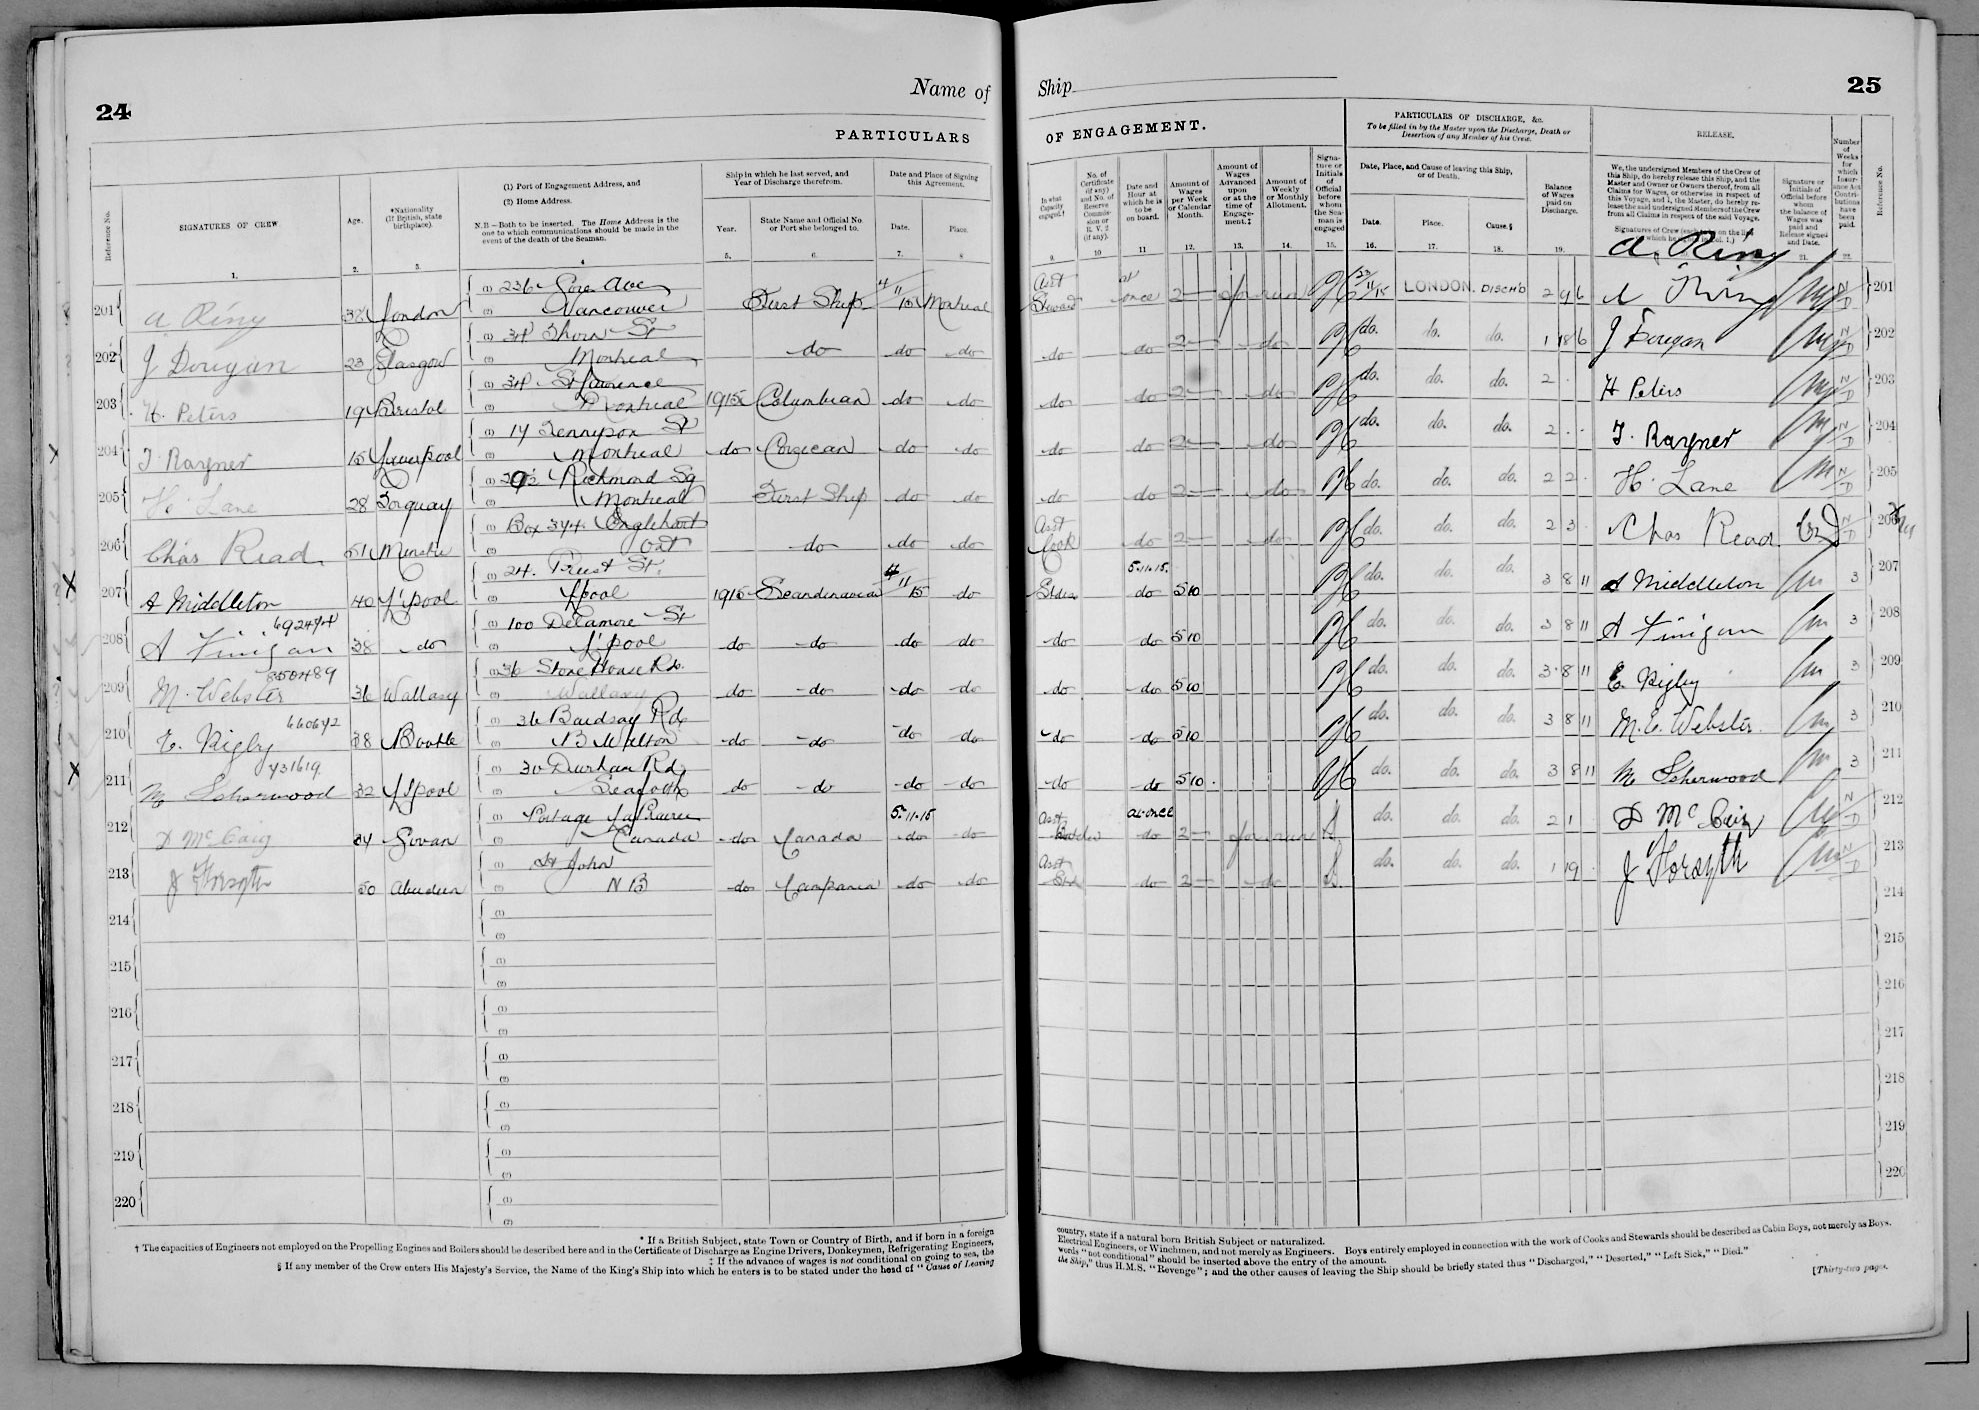 24
Name of
PARTICULARS
Reference No.
SIGNATURES OF CREW
1.
Age.
2.
*Nationality
(If British, state
birthplace).
3.
(1) Port of Engagement Address, and
(2) Home Address.
N.B.—Both to be inserted. The Home Address is the
one to which communications should be made in the
event of the death of the Seaman.
4
Ship in which he last served, and
Year of Discharge therefrom.
Year.
5.
State Name and Official No.
or Port she belonged to.
6.
Date and Place of Signing
this Agreement.
Date.
7.
Place.
8
201 A Riny 32 London (1) 236 Gore Ave (2) Vancouver First Ship 4/11/15 Montreal
202 J Dorigan 23 Glasgow (1) 34 Thorn St (2) Montreal do do do
203 H. Peters 19 Bristol (1) 34 St Lawrence (2) Montreal 1915 Columbian do do
204 T. Rayner 15 Liverpool (1) 14 Tennyson St (2) Montreal do Corsican do do
205 H. Lane 28 Torquay (1) Richmond Sq (2) Montreal First Ship do do
206 Chas Read 51 (1) Box 344 Englehart (2) Ont do do do
207 A Middleton 40 L'pool (1) 24. Priest St. (2) L'pool 1915 Scandinavian 4/11/15 do
208 A Finigan 692474 38 do (1) 100 Delamore St (2) L'pool do do do do
209 M. Webster 850489 36 Wallasey (1) 36 Stone House Rd. (2) Wallasey do do do do
210 E. Rigby 660642 38 Bootle (1) 36 Bardsay Rd (2) Walton do do do do
211 M Isherwood 431619 32 L'pool (1) 30 Durham Rd (2) Seaforth do do do do
212 D McCaig 34 Govan (1) Portage La Prairie (2) Canada do Canada 5.11.15 do do
213 J Forsyth 50 Aberdeen (1) St John (2) N B do Campania do do
214 (1) (2)
215 (1) (2)
216 (1) (2)
217 (1) (2)
218 (1) (2)
219 (1) (2)
220 (1) (2)
* If a British Subject, state Town or Country of Birth, and if born in a foreign
† The capacities of Engineers not employed on the Propelling Engines and Boilers should be described here and in the Certificate of Discharge as Engine Drivers, Donkeymen, Refrigerating Engineers,
‡ If the advance of wages is not conditional on going to sea, the
§ If any member of the Crew enters His Majesty's Service, the Name of the King's Ship into which he enters is to be stated under the head of "Cause of Leaving
Ship
25
OF ENGAGEMENT.
PARTICULARS OF DISCHARGE, &c.
To be filled in by the Master upon the Discharge, Death or
Desertion of any Member of his Crew.
RELEASE.
In what
Capacity
engaged.†
9.
No. of
Certificate
(if any)
and No. of
Reserve
Commis-
sion or
R. V. 2
(if any).
10
Date and
Hour at
which he is
to be
on board.
11
Amount of
Wages
per Week
or Calendar
Month.
12.
Amount of
Wages
Advanced
upon
or at the
time of
Engage-
ment.‡
13.
Amount of
Weekly
or Monthly
Allotment.
14.
Signa-
ture or
Initials
of
Official
before
whom
the Sea-
man is
engaged
15.
Date, Place, and Cause of leaving this Ship,
or of Death.
Date.
16.
Place.
17.
Cause.§
18.
Balance
of Wages
paid on
Discharge.
19.
We, the undersigned Members of the Crew of
this Ship, do hereby release this Ship, and the
Master and Owner or Owners thereof, from all
Claims for Wages, or otherwise in respect of
this Voyage, and I, the Master, do hereby re-
lease the said undersigned Members of the Crew
from all Claims in respect of the said Voyage.
Signature or
Initials of
Official before
whom
the balance of
Wages was
paid and
Release signed
and Date.
21.
Number
of
Weeks
for
which
Insur-
ance Act
Contri-
butions
have
been
paid.
22.
Reference No.
A. Riny
Asst Steward at once 2 for run 23/11/15 LONDON. DISCH'D 2 9 6 A Riny N/D 201
do do 2 do do. do. do. 1 18 6 J Dorigan N/D 202
do do 2 do do. do. do. 2 H Peters N/D 203
do do 2 do do. do. do. 2 T. Rayner N/D 204
do do 2 do do. do. do. 2 2 H. Lane N/D 205
Asst Cook do 2 do do. do. do. 2 3 Chas Read N/D 206
Stdss 5.11.15. do 5 10 do. do. do. 3 8 11 A Middleton 3 207
do do 5 10 do. do. do. 3 8 11 A Finigan 3 208
do do 5 10 do. do. do. 3 8 11 E. Rigby 3 209
do do 5 10 do. do. do. 3 8 11 M. E. Webster 3 210
do do 5 10 do. do. do. 3 8 11 M Isherwood 3 211
Asst Butcher at once do 2 for run do. do. do. 2 1 D McCaig N/D 212
Asst Std do 2 do do. do. do. 1 19 J Forsyth N/D 213
214
215
216
217
218
219
220
country, state if a natural born British Subject or naturalized.
Electrical Engineers, or Winchmen, and not merely as Engineers. Boys entirely employed in connection with the work of Cooks and Stewards should be described as Cabin Boys, not merely as Boys.
words "not conditional" should be inserted above the entry of the amount.
the Ship," thus H.M.S. "Revenge"; and the other causes of leaving the Ship should be briefly stated thus "Discharged," "Deserted," "Left Sick," "Died."
[Thirty-two pages.